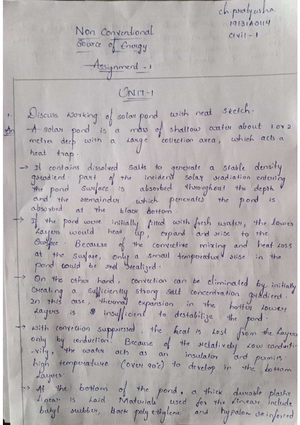 ch.pratyusha
19131A0114
Civil-1
Non Conventional
Source of Energy
Assignment-1
UNIT-1
Discuss working of solar pond with neat sketch.
A solar pond is a mass of shallow water about 1 or 2
metre deep with a large collection area, which acts a
heat trap.
→ It contains dissolved salts to generate a stable density
gradient. Part of the incident solar radiation entering
the pond surface is absorbed throughout the depth
and the remainder which penerates the pond is
absorbed at the black bottom
→ If the pond were initially filled with fresh water, the lower
layers would heat up, expand and rise to the
surface. Because of the convective mixing and heat loss
at the surface, only a small temperature rise in the
pond could be realized.
→ On the other hand, convection can be eliminated by initially
creating a sufficiently strong salt concentration gradient.
In this case, thermal expansion in the hotter lower
layers is insufficient to destabilize the pond.
→ With convection suppressed, the heat is lost from the layers
only by conduction. Because of the relatively low conducti-
-vity, the water acts as an insulator and permits
high temperature (over 90°c) to develop in the bottom
layers.
→ At the bottom of the pond, a thick durable plastic
linear is laid. Materials used for the linear, include
butyl rubber, black polyethylene and hypalon reinforced